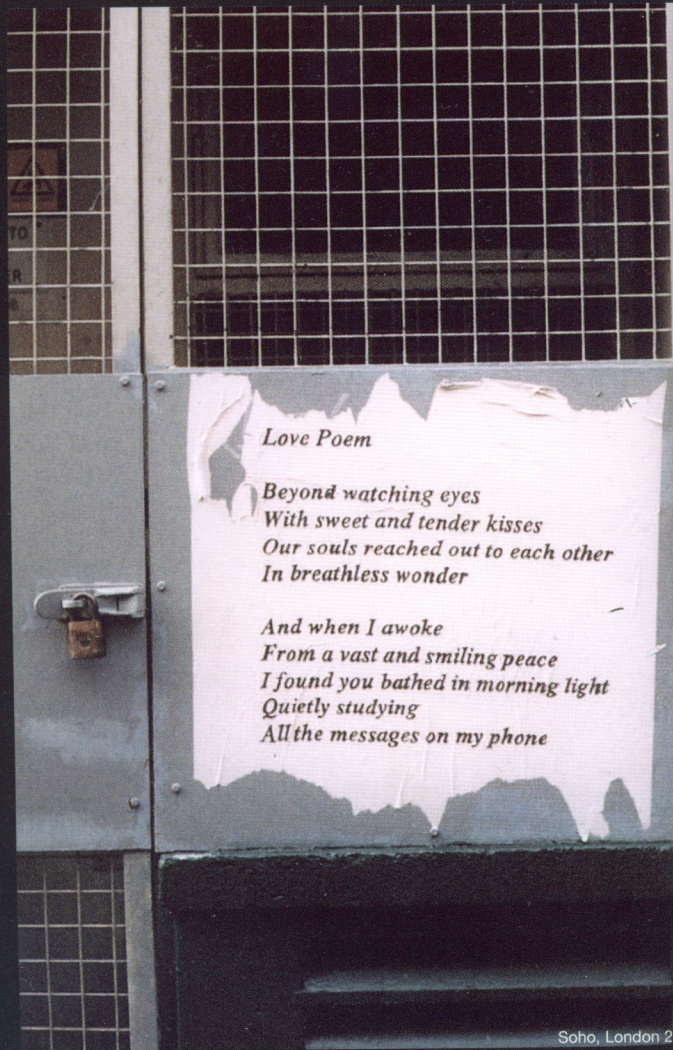 TO
ER
Love Poem
Beyond watching eyes
With sweet and tender kisses
Our souls reached out to each other
In breathless wonder
And when I awoke
From a vast and smiling peace
I found you bathed in morning light
Quietly studying
All the messages on my phone
Soho, London 2